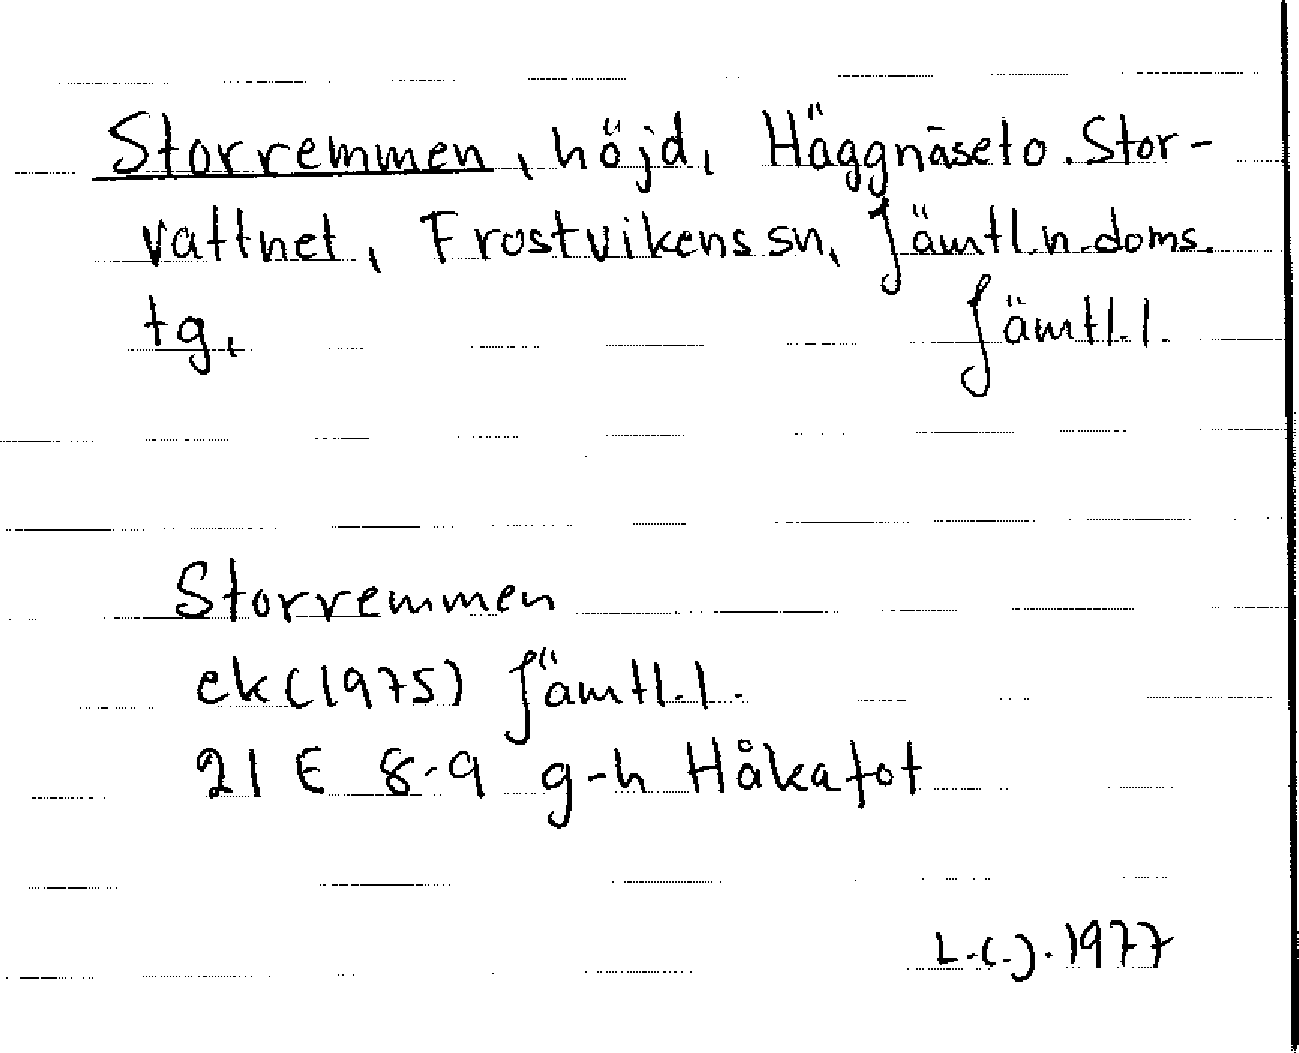 Storremmen, höjd, Häggnäset o. Stor-
vattnet, Frostvikens sn, Jämtl. n. doms.
tg, Jämtl. l.
Storremmen
ek (1975) Jämtl. l.
21 E 8-9 g-h Håkafot
L.C.J. 1977